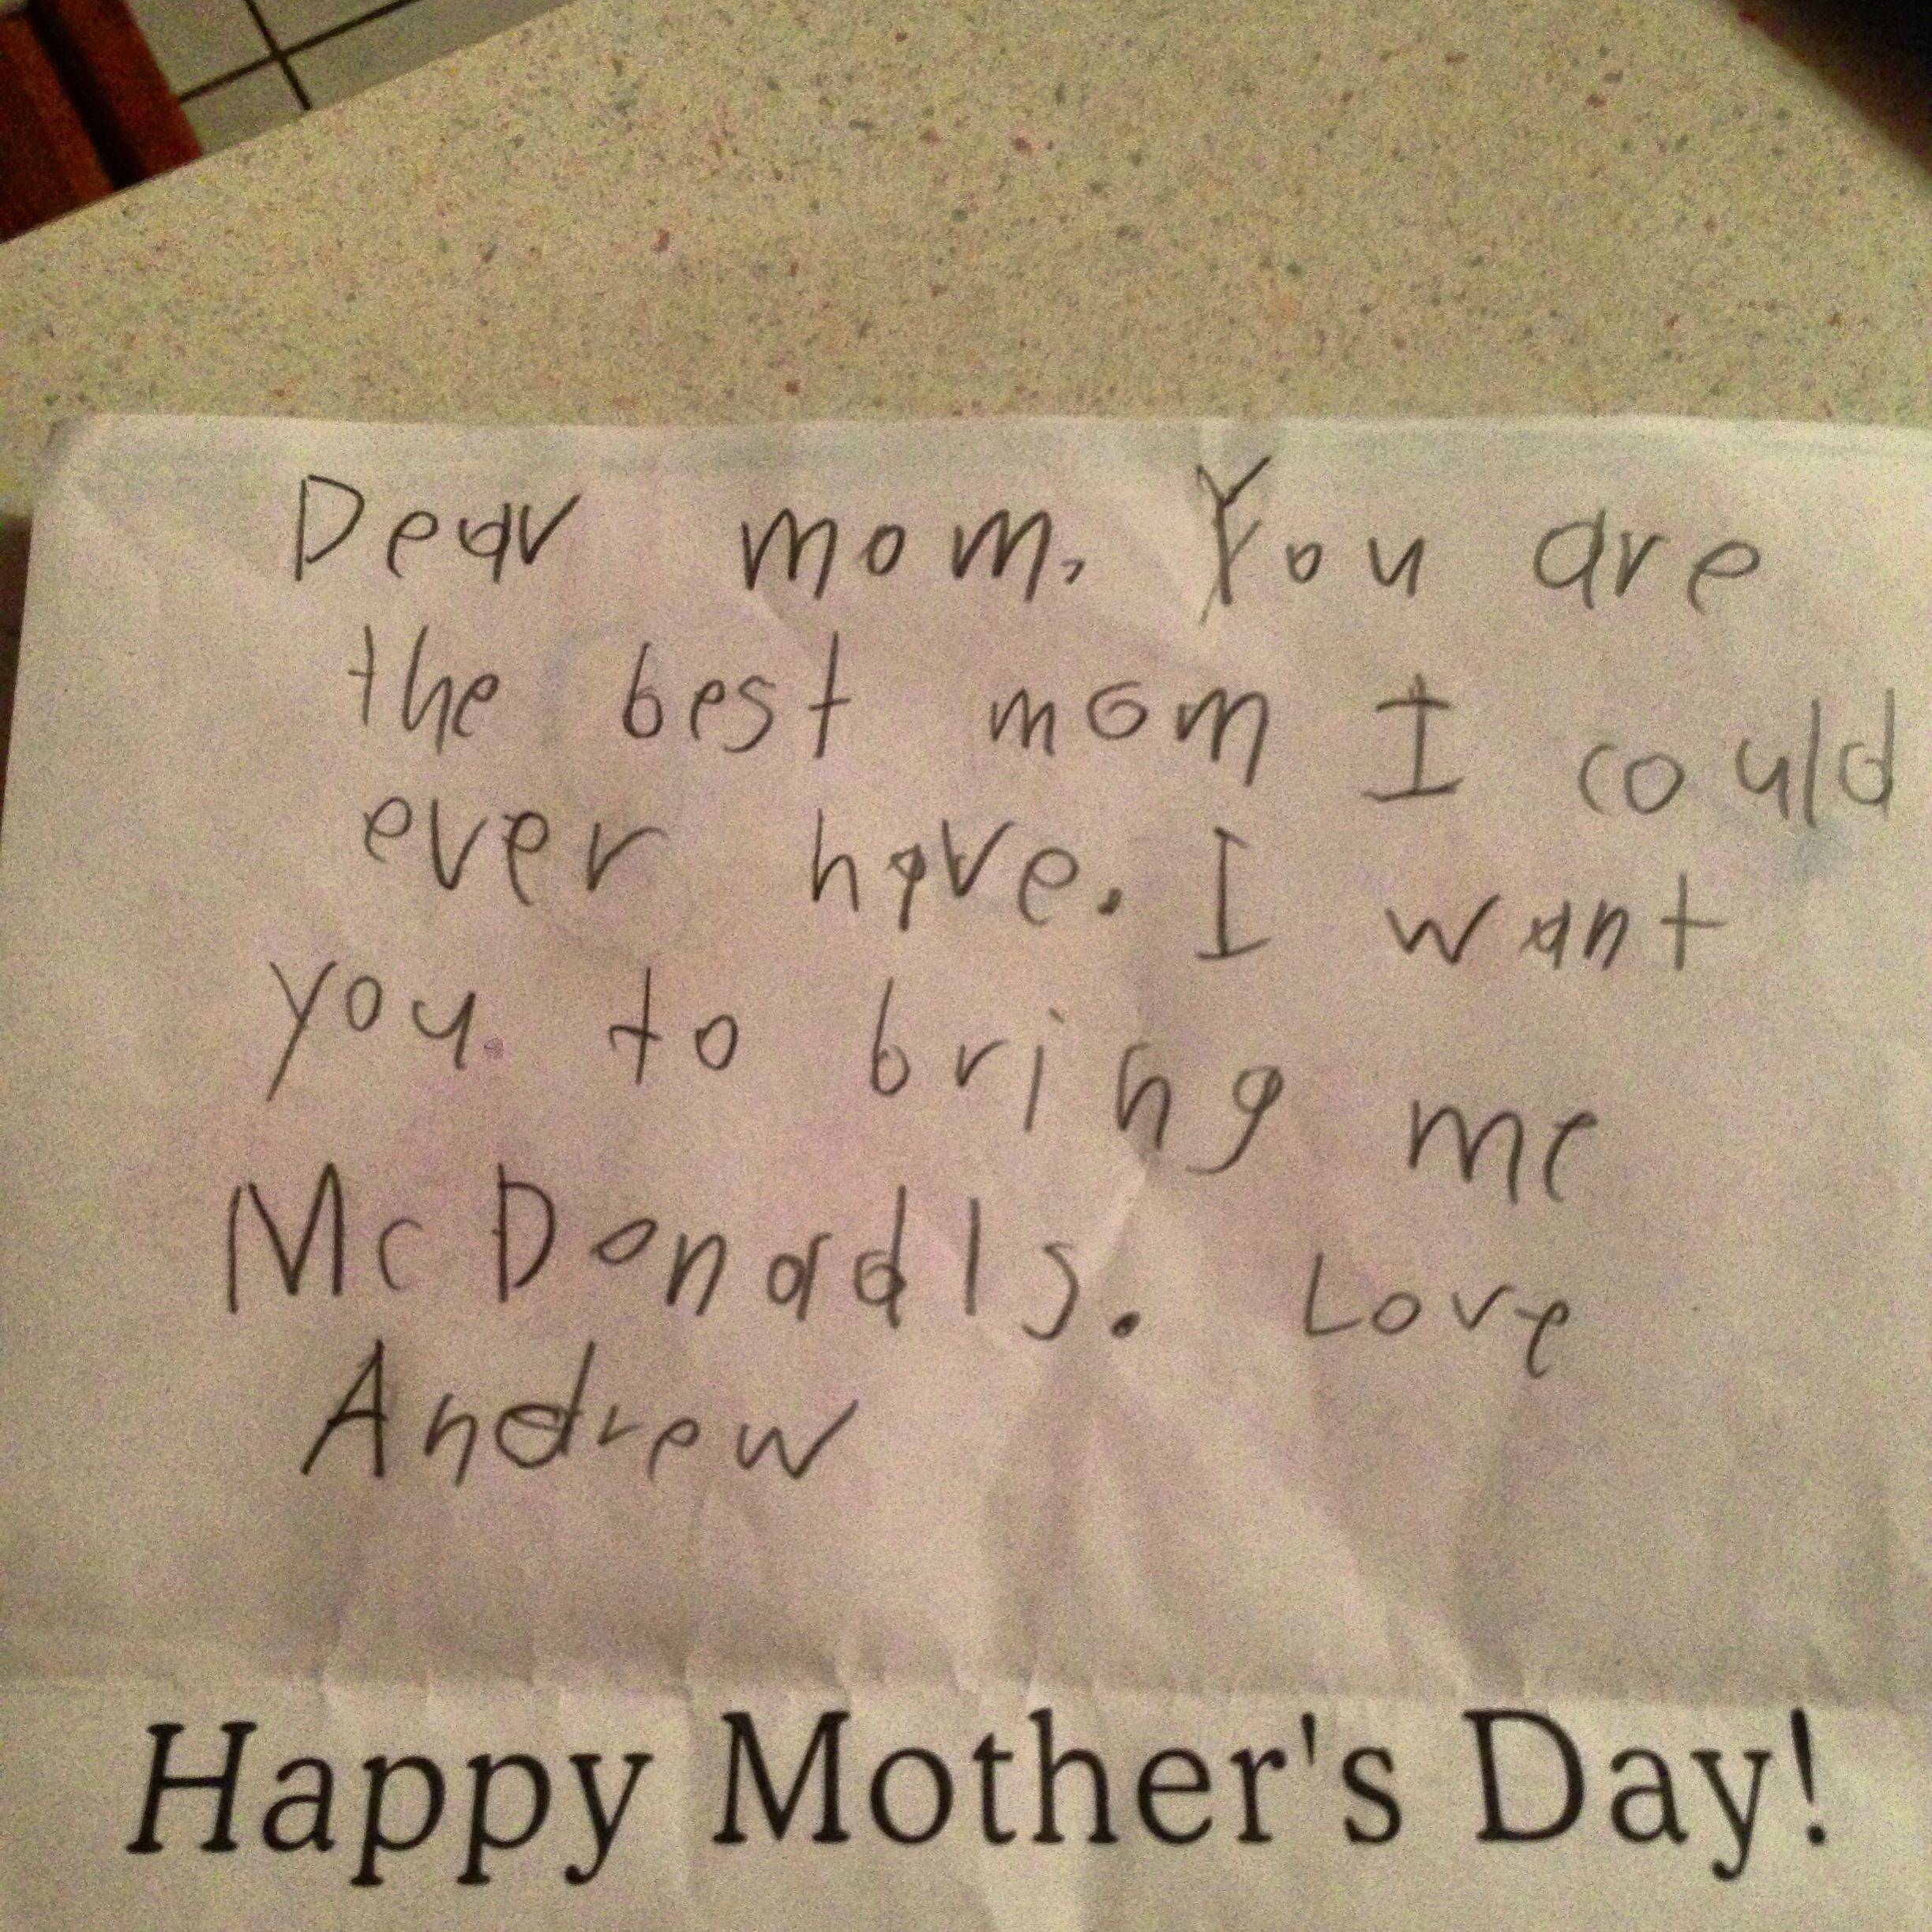 Dear mom, You are
the best mom I could
ever have. I want
you to bring me
McDonadls. Love
Andrew
Happy Mother's Day!